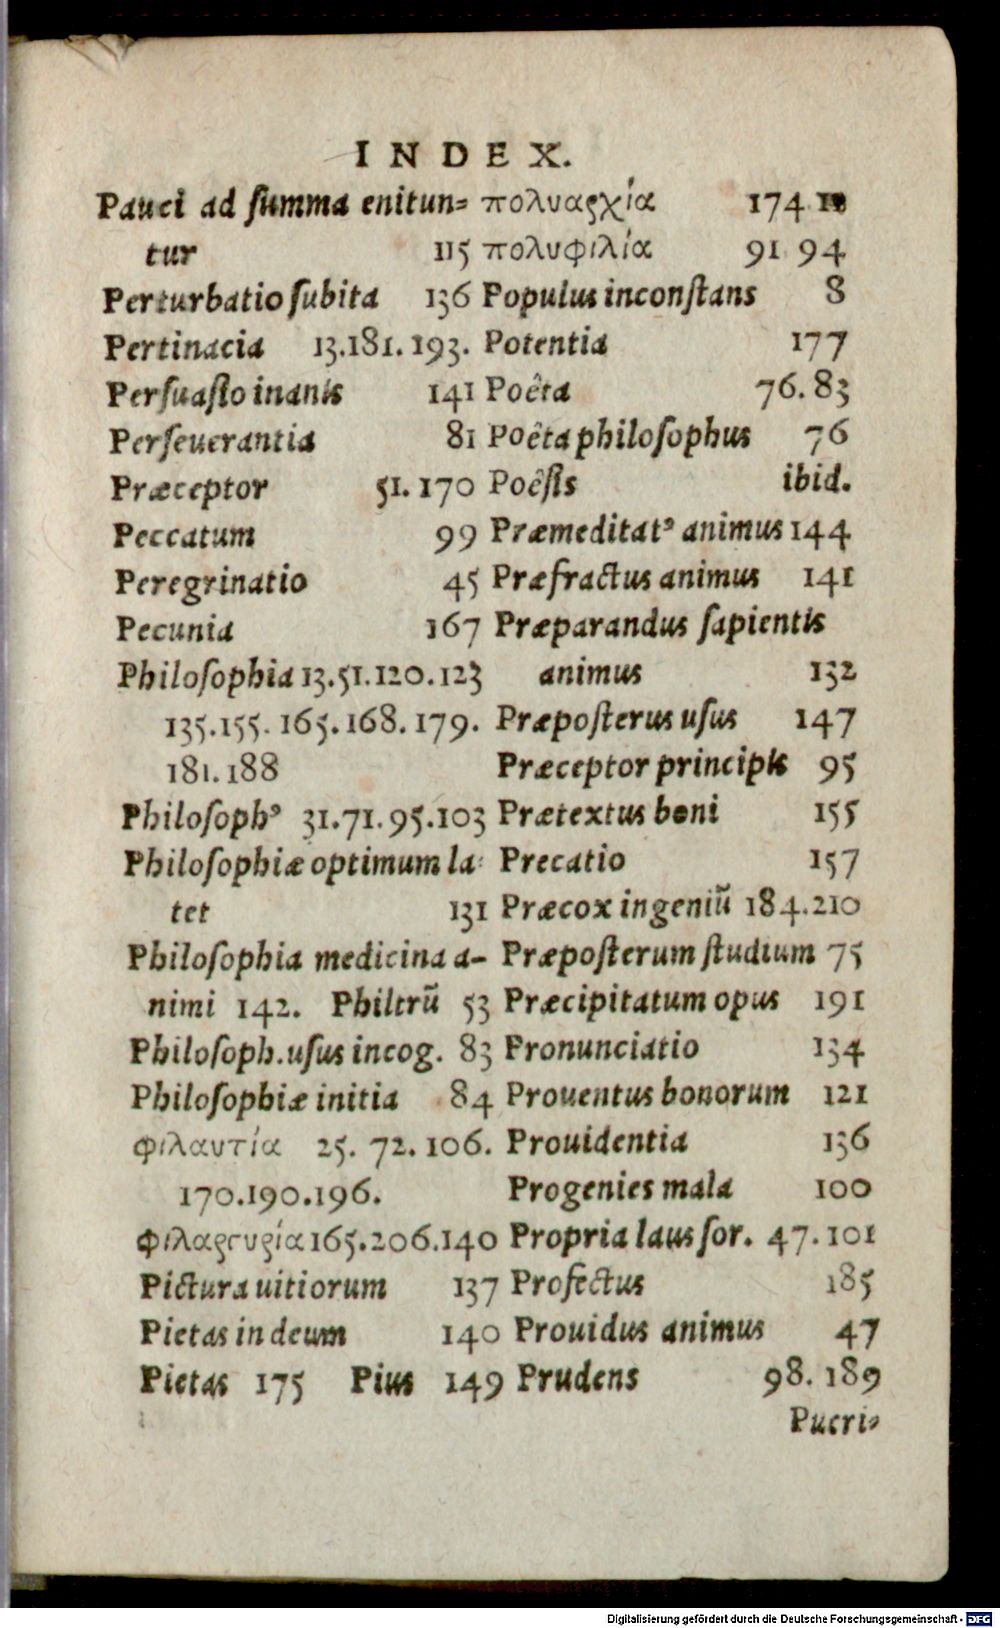 INDEX.
Pauci ad ſumma enitun=
tur 115
Perturbatio ſubita 136
Pertinacia 13.181.193.
Perſuaſio inanis 141
Perſeuerantia 81
Præceptor 51.170
Peccatum 99
Peregrinatio 45
Pecunia 167
Philoſophia 13.51.120.123
135.155.165.168.179.
181.188
Philoſophꝰ 31.71.95.103
Philoſophiæ optimum la=
tet 131
Philoſophia medicina a-
nimi 142. Philtrū 53
Philoſoph.uſus incog. 83
Philoſophiæ initia 84
φιλαυτία 25. 72. 106.
170.190.196.
φιλαργυρία 165.206.140
Pictura uitiorum 137
Pietas in deum 140
Pietas 175 Pius 149
πολυαρχία 174
πολυφιλία 91 94
Populus inconſtans 8
Potentia 177
Poêta 76.83
Poêta philoſophus 76
Poêſis ibid.
Præmeditatꝰ animus 144
Præfractus animus 141
Præparandus ſapientis
animus 132
Præpoſterus uſus 147
Præceptor principis 95
Prætextus boni 155
Precatio 157
Præcox ingeniū 184.210
Præpoſterum ſtudium 75
Præcipitatum opus 191
Pronunciatio 134
Prouentus bonorum 121
Prouidentia 136
Progenies mala 100
Propria laus ſor. 47.101
Profectus 185
Prouidus animus 47
Prudens 98.189
Pueri=
Digitalisierung gefördert durch die Deutsche Forschungsgemeinschaft - DFG